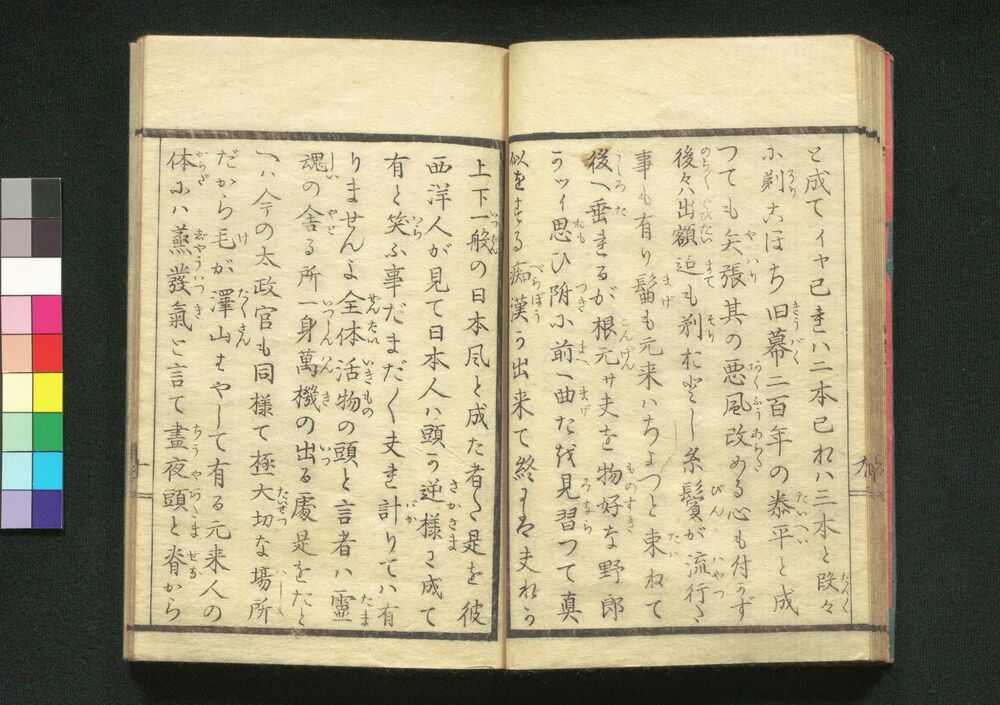 と成てイヤ已まハ二本已れハ三本と段々
小剃こほち旧幕二百年の泰平と成
つても矢張其の悪風改める心も付かず
後々ハ出額迠も剃おとし糸鬢が流行し
事も有り髷も元来ハちょつと束ねて
後へ垂るが根元サ夫を物好な野郎
うツイ思ひ附小前へ曲たを見習つて真
似をする痴漢か出来て終には夫れか
上下一般の日本風と成た者だ是を彼
西洋人が見て日本人ハ頭か逆様に成て
有と笑ふ事だまだ〱夫計りてハ有
りませんよ全体活物の頭と言者ハ霊
魂の舎る所一身萬機の出る處是をたと
へハ今の太政官も同様て極大切な場所
だから毛が澤山はやして有る元来人の
体にハ蒸發氣と言て晝夜頭と脊から